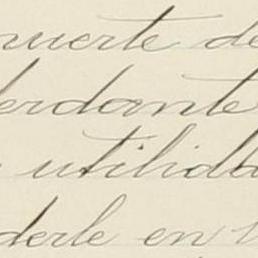 muerte de
ferdante
utilida
derle en l